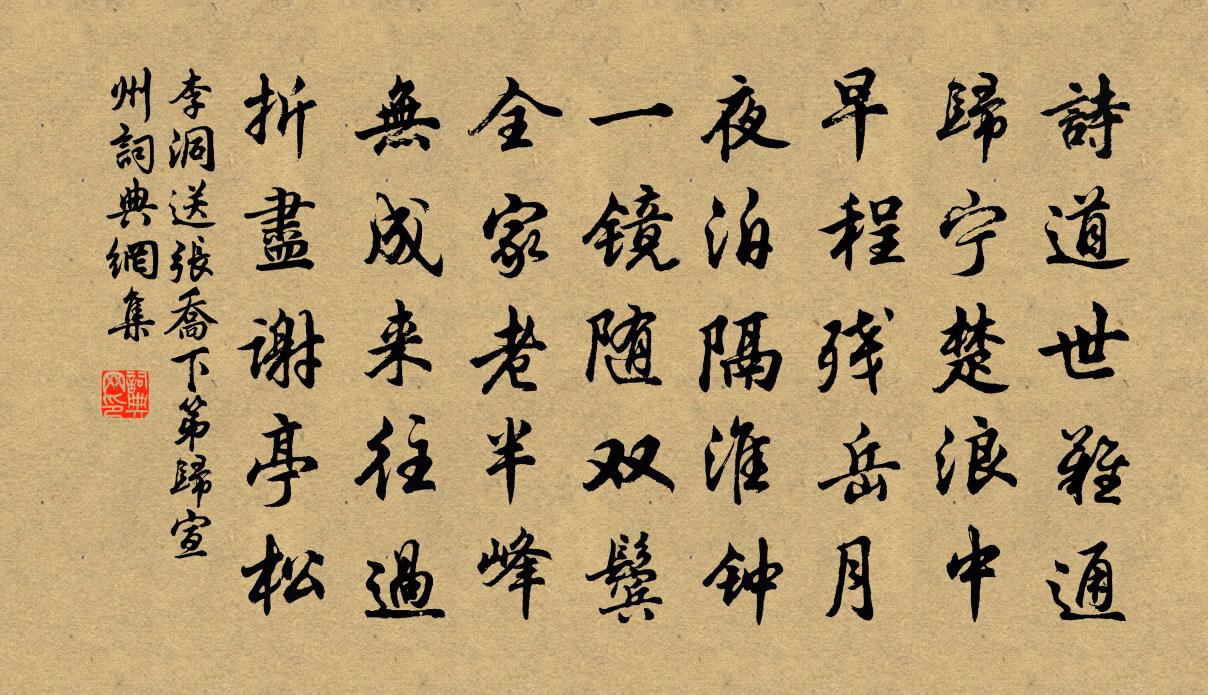 詩道世難通
歸宁楚浪中
早程残岳月
夜泊隔淮钟
一镜随双鬓
全家老半峰
無成来往過
折盡謝亭松
李洞送張喬下第歸宣
州詞典網集
詞典
网印